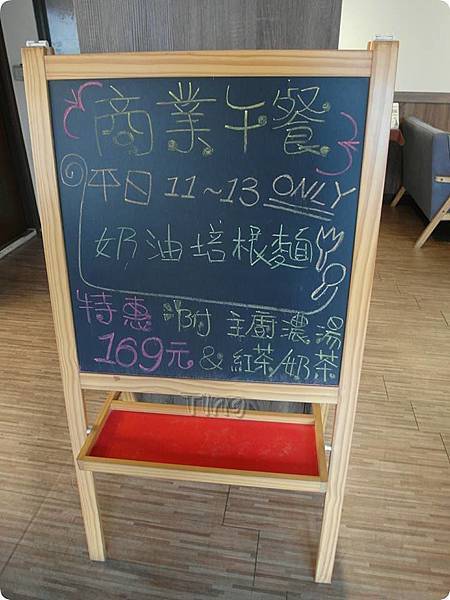 商業午餐
平日 11~13 ONLY
奶油培根麵
特惠 附 主廚濃湯
169元 & 紅茶/奶茶
Ting